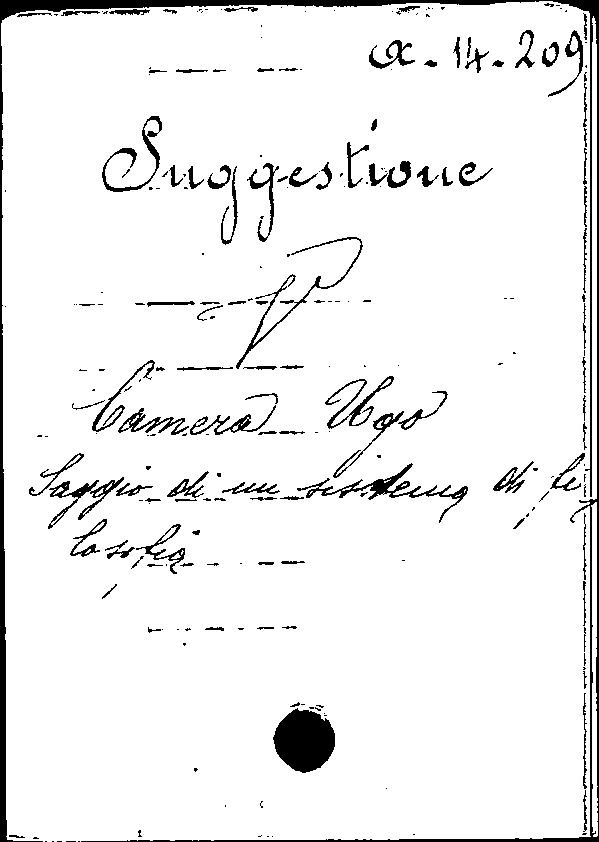 α-14-209
Suggestione
V
Camera Ugo
Saggio di un sistema di fi-
losofia